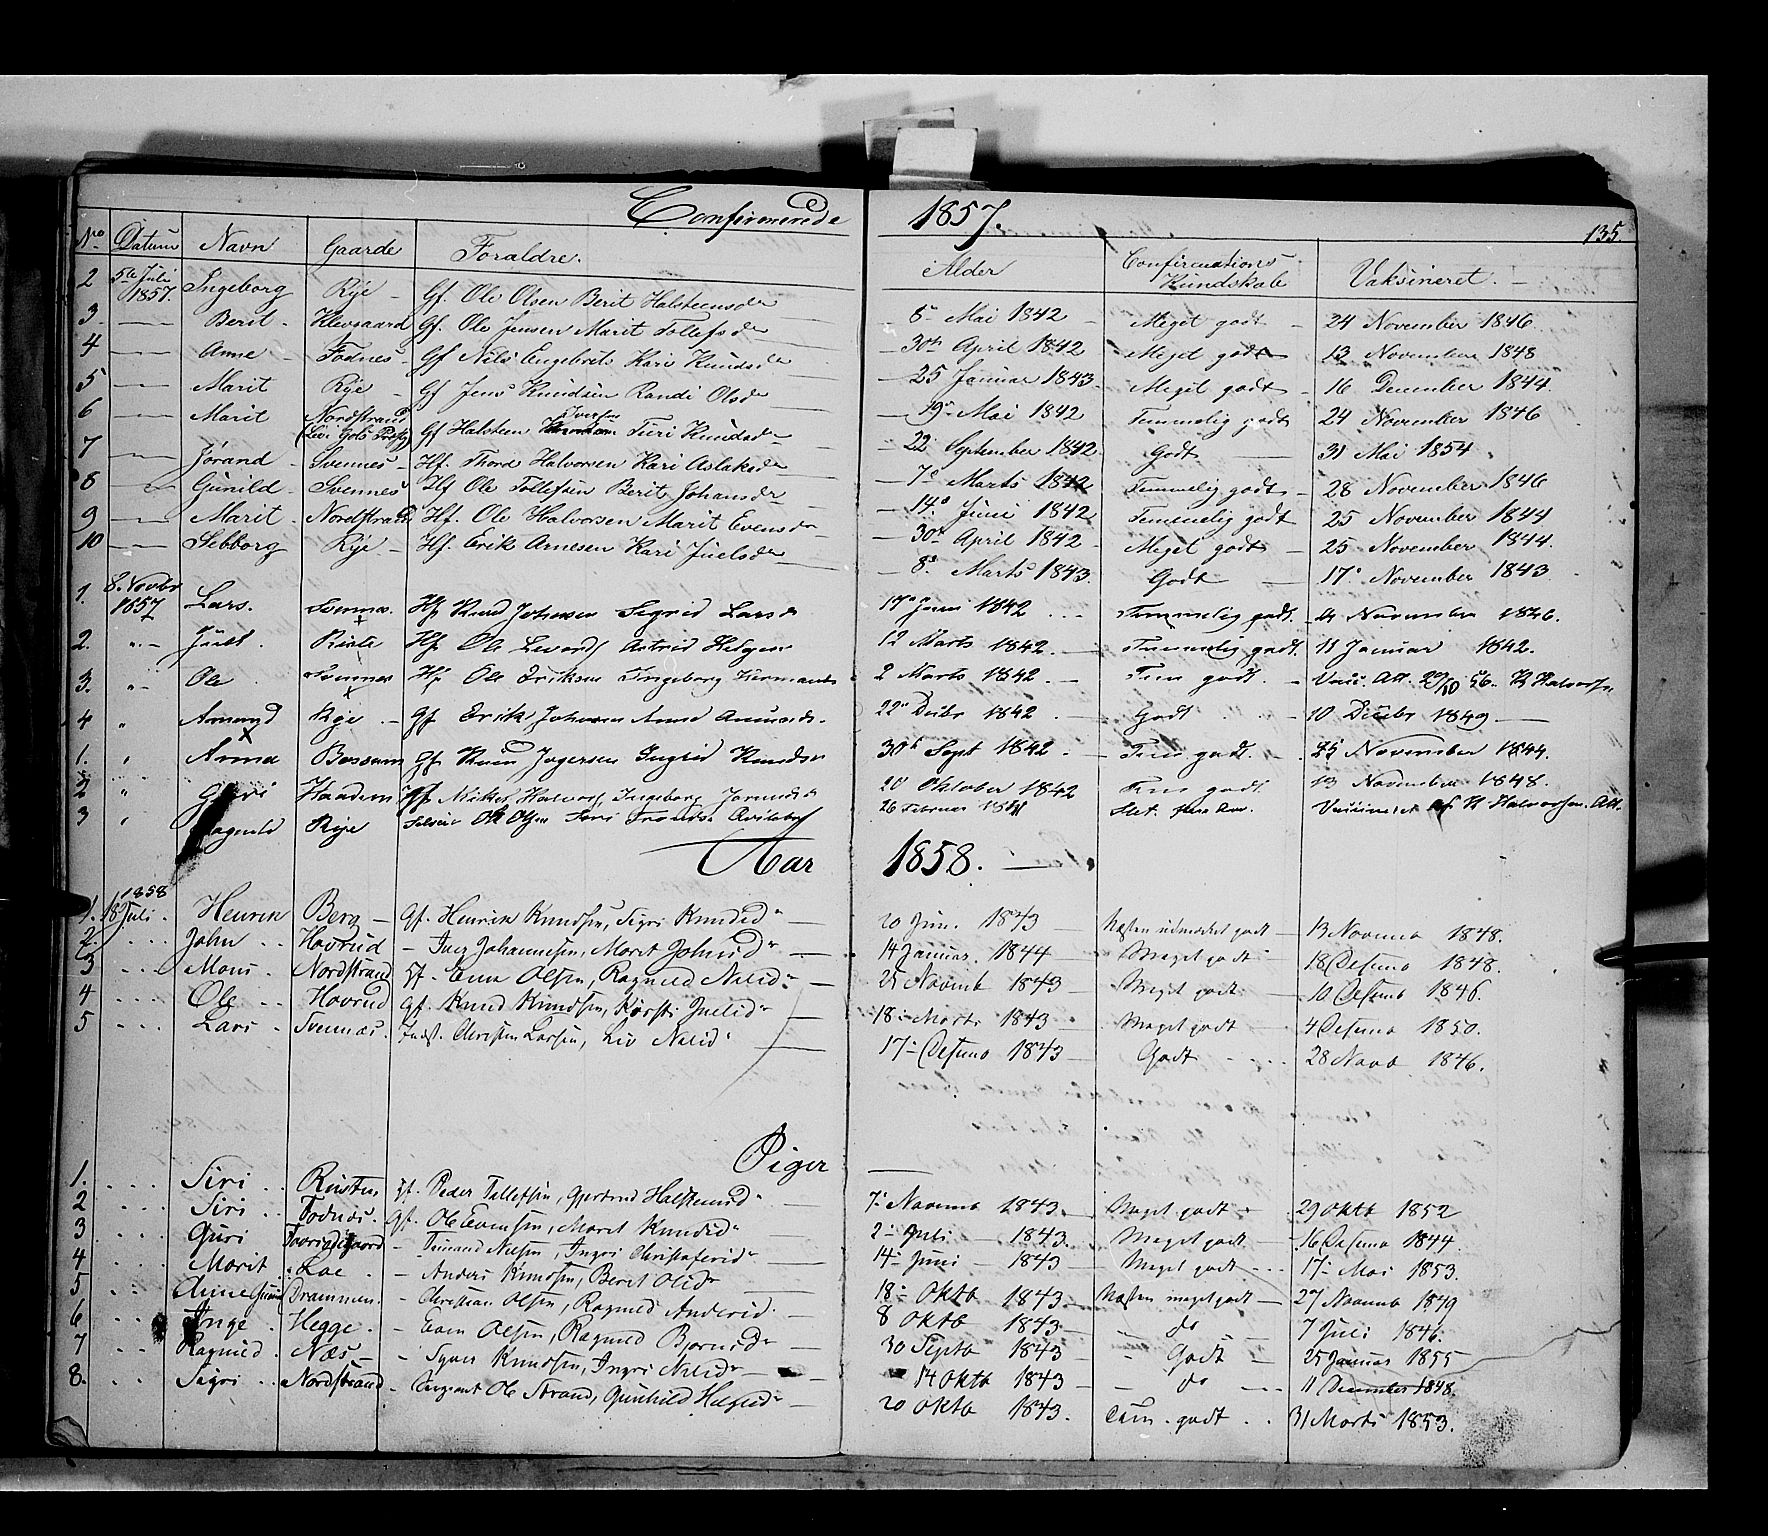 Confirmerede 1857. 135.
No Datum Navn Gaarde Foraldre. Alder Confirmations Kundskab Vaksineret.
2 5te Juli 1857. Ingeborg Rye Gf. Ole Olsen Berit Halsteensdr 6 Mai 1842 Meget godt 24 November 1846
3 Berit Klevgaard Gf. Ole Jensen Marit Tollefsdr 30te April 1842 Meget godt 13 November 1848
4 Anne Fodnes Gf Nils Engebrets Kari Knudsdr 25 Januar 1843 Meget godt 16 December 1844
5 Marit Rye Gf Jens Knudsen Randi Olsdr 19 Mai 1842 Temmelig godt 24 November 1846
6 Marit Nordstrand Gf Halsteen Iversen Turi Knudsdr 22 September 1842 Godt 31 Mai 1854
7 Jørand Svennes Hf. Thore Halvorsen Kari Aslaksdr 7 Marts 1842 Temmelig godt 28 November 1846
8 Gunild Svennes Hf Ole Tollefsen Berit Johansdr 14 Juni 1842 Temmelig godt 25 November 1844
9 Marit Nordstrand Hf. Ole Halvorsen Marit Evensdr 30 April 1842 Meget godt 25 November 1844
10 Sebborg Rye Hf. Erik Arnesen Kari Juelsdr 8 Marts 1843 Godt 17 November 1843
1. 8. Novbr 1857 Lars. Svennes. Hf Knud Johnsen Sigrid Larsdr 17 Juni 1842 Temmelig godt. November 1846.
2. Juel Riste Hf Ole Astrid Helgesdr 12 Marts 1842 Temmelig godt. 11 Januar 1842.
3. Ole Svennes Hf Ole Eriksen Ingeborg 2 Marts 1842 Tem godt. Att. 29/10 56. K Halvorsen
4 Amund Rye Gf Erik Johnsen Anne Amundsdr 22 Decbr 1842 Godt 10 Decbr 1849
1. Anne Gf Knud Ingrid Knudsdr 30 Sept 1842 Tem godt. 25 November 1844.
2 Haadem Hf Mikkel Halvors Ingeborg 20 Oktober 1842 Tem godt 13 November 1848.
3 Ragnild Rye Ole Olsen Siri 26 Februar Slet. Vaccineret af K Halvorsen. Att.
Aar 1858.
1. 1858 18 Juli. Henrik Berg Gf. Henrik Knudsen, Sigri Knudsd. 20 Juni 1843 Næsten udmærket godt 13 Novemb 1848.
2. John Havrud Iver Johannesen, Marit Johnsd. 14 Januar 1844 Meget godt 18 Desemb 1848.
3 Mons Nordstrand Gf. Even Olsen, Ragnild Nilsd. 25 Novemb 1843 Meget godt 10 Desemb 1846.
4 Ole Havrud Gf. Knud Knudsen, Kjersti Juelsd. 18 Marts 1843 Meget godt 4 Desemb 1850.
5 Lars Svennæs. Indst. Christen Larsen, Liv Nilsd. 17 Desemb 1843 Godt 28 Novb 1846.
Piger
1. Siri Rusten Gf. Peder Tollefsen, Gjertrud Halsteensd. 7 Novemb 1843 Meget godt 29 Oktb 1852
2 Siri Fodnæs. Gf. Ole Evensen, Marit Knudsd. 2 Juli 1843. Meget godt 16 Desemb 1844.
3 Guri Nilsen, Ingri Christofersd. 14 Juni 1843 Meget godt 17 Mai 1853.
4 Marit Anders Knudsen, Berit Olsd. 18 Oktb 1843 Næsten meget godt 27 Novemb 1849
5 Anne Drammen. Christian Olsen, Ragnild Andersd. 8 Oktb 1843 do 7 Juli 1846.
6 Inge Hegge. Even Olsen, Ragnild Bjørnsd. 30 Septb 1843 Godt 25 Januar 1855
7 Ragnild. Næs Syver Knudsen, Ingri Nilsd. 14 Oktb 1843 do 11 December 1848.
8. Sigri Nordstrand Sergeant Ole Strand, Gunhild Helgesd. 20 Oktb 1843. Tem. godt 31 Marts 1853.